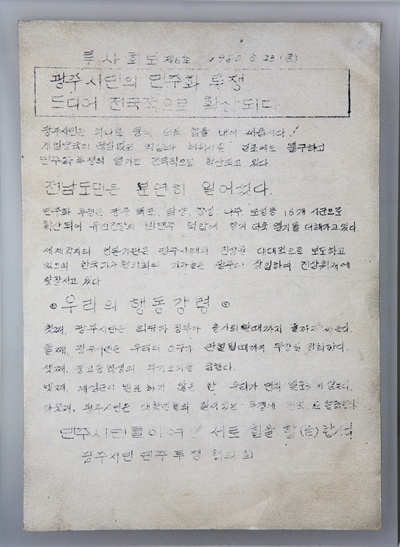 투사회보 제6호 1980. 5. 23 (금)
광주시민의 민주화 투쟁
드디어 전국적으로 확산되다
광주시민은 하나로 힘을 내어 싸웁시다!
불구하고
민주화 투쟁의 열기는 전국적으로 확산되고 있다
전남도민은 분연히 일어섰다.
민주화 투쟁은 광주 목포, 담양, 장성, 나주, 보성등 16개 시군으로
확산되어 더욱 열기를 더해가고 있다
세계각지의 언론기관은 광주사태의 진상을 대대적으로 보도하고
있으며 한국기자협회의 기자들은 광주에 잠입하여 진상취재에
앞장서고 있다
◎우리의 행동강령◎
첫째, 광주시민은 때까지 끝까지 싸운다.
둘째, 광주시민은 우리의 요구가 관철될때까지 무장을 강화한다.
셋째, 중고등학생의 무기소지를 금한다.
넷째, 계엄군이 발포하지 않는 한 우리가 먼저 발포하지 않는다.
다섯째, 광주시민은 대학인들의
민주시민들이여! 서로 힘을 합(合)합시다
광주시민 민주투쟁 협의회